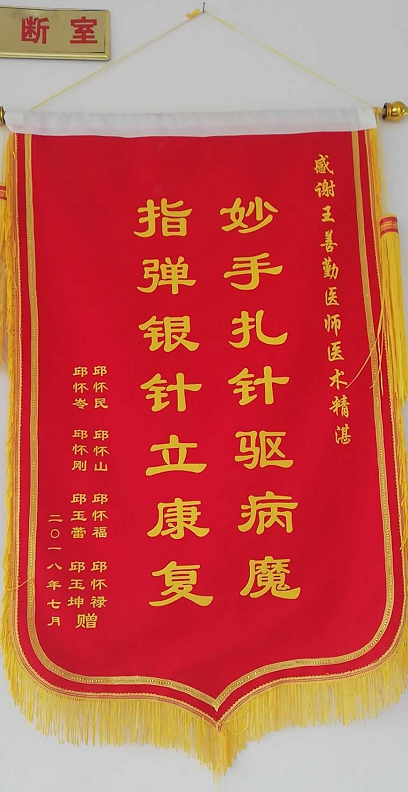 断室
感谢王善勤医师医术精湛
妙手扎针驱病魔
指弹银针立康复
邱怀民 邱怀山 邱怀福 邱怀禄
邱怀岑 邱怀刚 邱玉蕾 邱玉坤 赠
二〇一八年七月